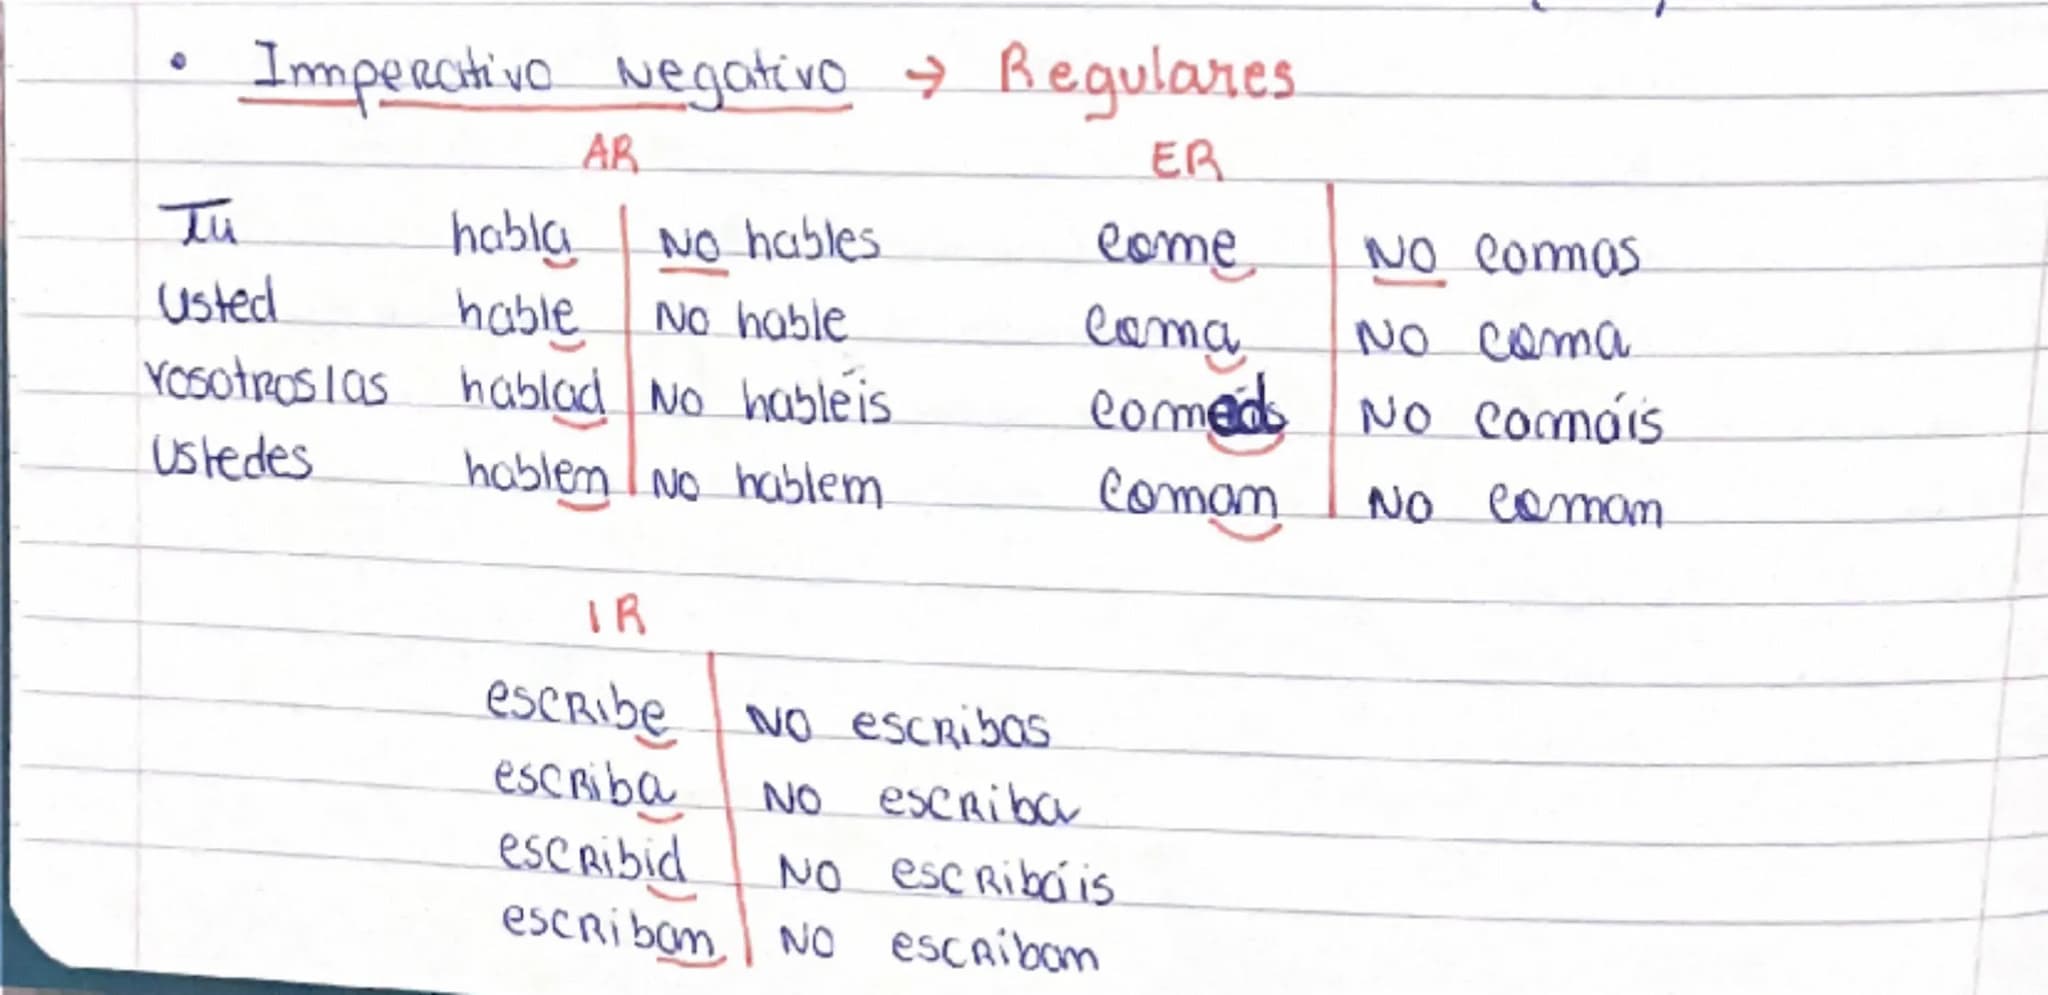 • Imperativo Negativo → Regulares
AR ER
Tu habla | NO hables come | NO comas
Usted hable | NO hable coma | NO coma
vosotros/as hablad | NO habléis | NO comáis
Ustedes hablen | NO hablen coman | NO coman
IR
escribe | NO escribas
escriba | NO escriba
escribid | NO escribáis
escriban | NO escriban